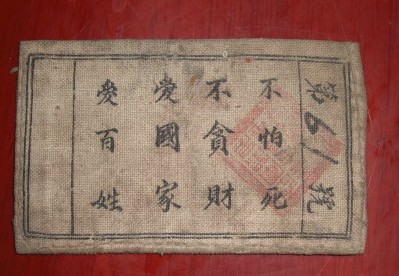 第61號
不怕死
不貪財
愛國家
愛百姓